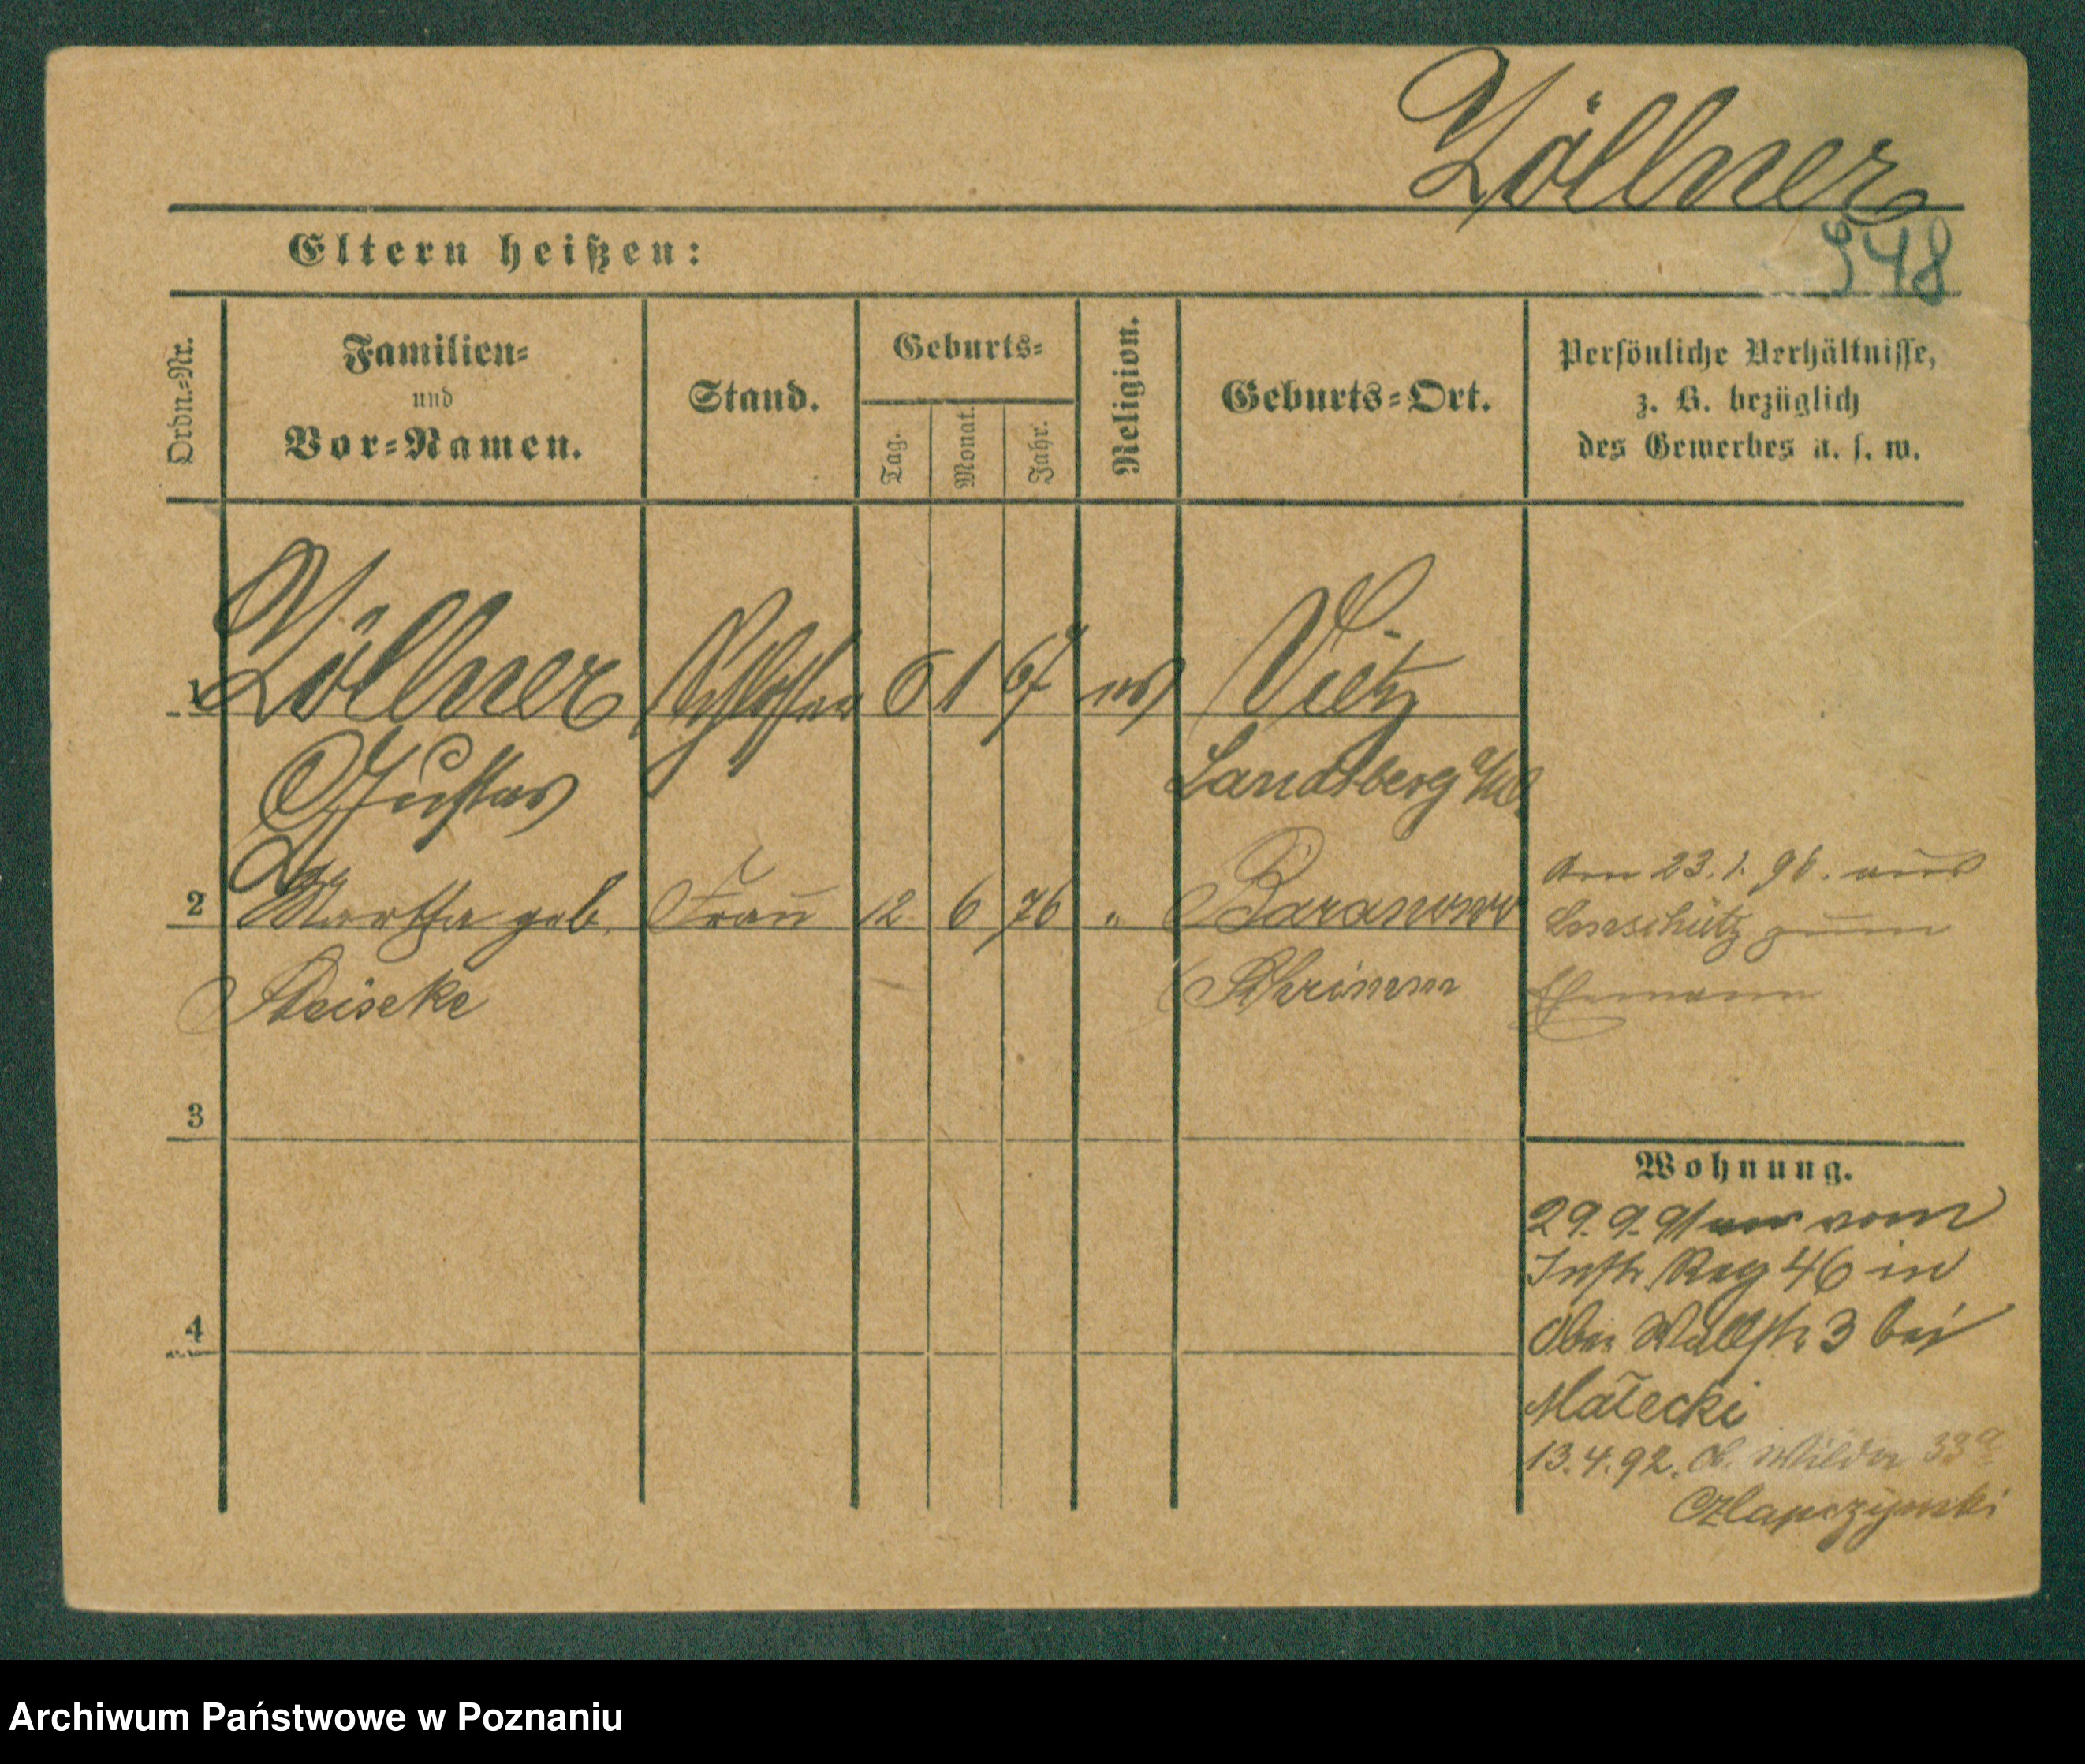 Zöllner
948
Eltern heißen:
Ordn.=Nr.
Familien=
und
Vor=Namen.
Stand.
Geburts=
Tag.
Monat.
Jahr.
Religion.
Geburts=Ort.
Persönliche Verhältnisse,
z. B. bezüglich
des Gewerbes u. s. w.
1 Zöllner Schlosser 6 1 67 ev Vietz
Gustav Landsberg a/W.
2 Martha geb. Frau 12. 6 76 " Baranowo
Schrimm
am 23.1.96. aus
zum
Ehemann
3
4
Wohnung.
29.9.91 vom
Inftr Reg 46 in
Ober Wallstr 3 bei
Małecki
13.4.92. O. Wilda 33a
Czlapczynski
Archiwum Państwowe w Poznaniu